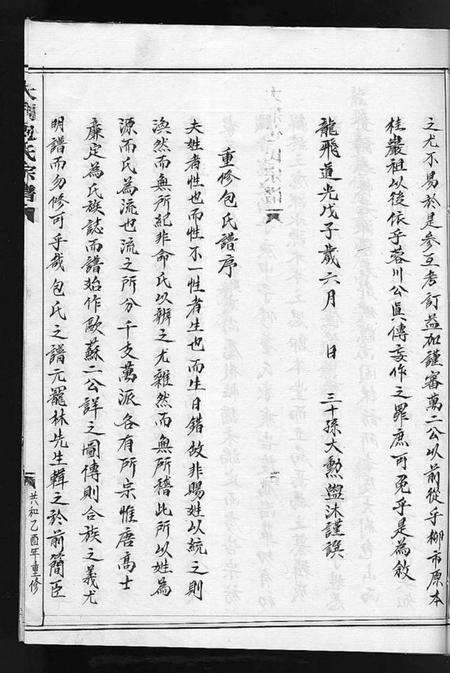 之尤不易於是參互考訂益加謹審萬二公以前從乎柳市原本
桂巖祖以後依乎蓉川公真傳妄作之罪庶可免乎是為敘
龍飛道光戊子歲六月 日 三十孫大勲盥沐謹譔
重修包氏譜序
夫姓者性也而性不一性者生也而生日錯故非賜姓以統之則
渙然而無所紀非命氏以辨之尤雜然而無所稽此所以姓為
源而氏為流也流之所分千支萬派各有所宗惟唐高士
廉定為氏族誌而譜始作歐蘇二公詳之圖傳則合族之義尤
明譜而勿修可乎哉包氏之譜元罷林先生輯之於前簡臣
包氏宗譜
共和乙酉年重修